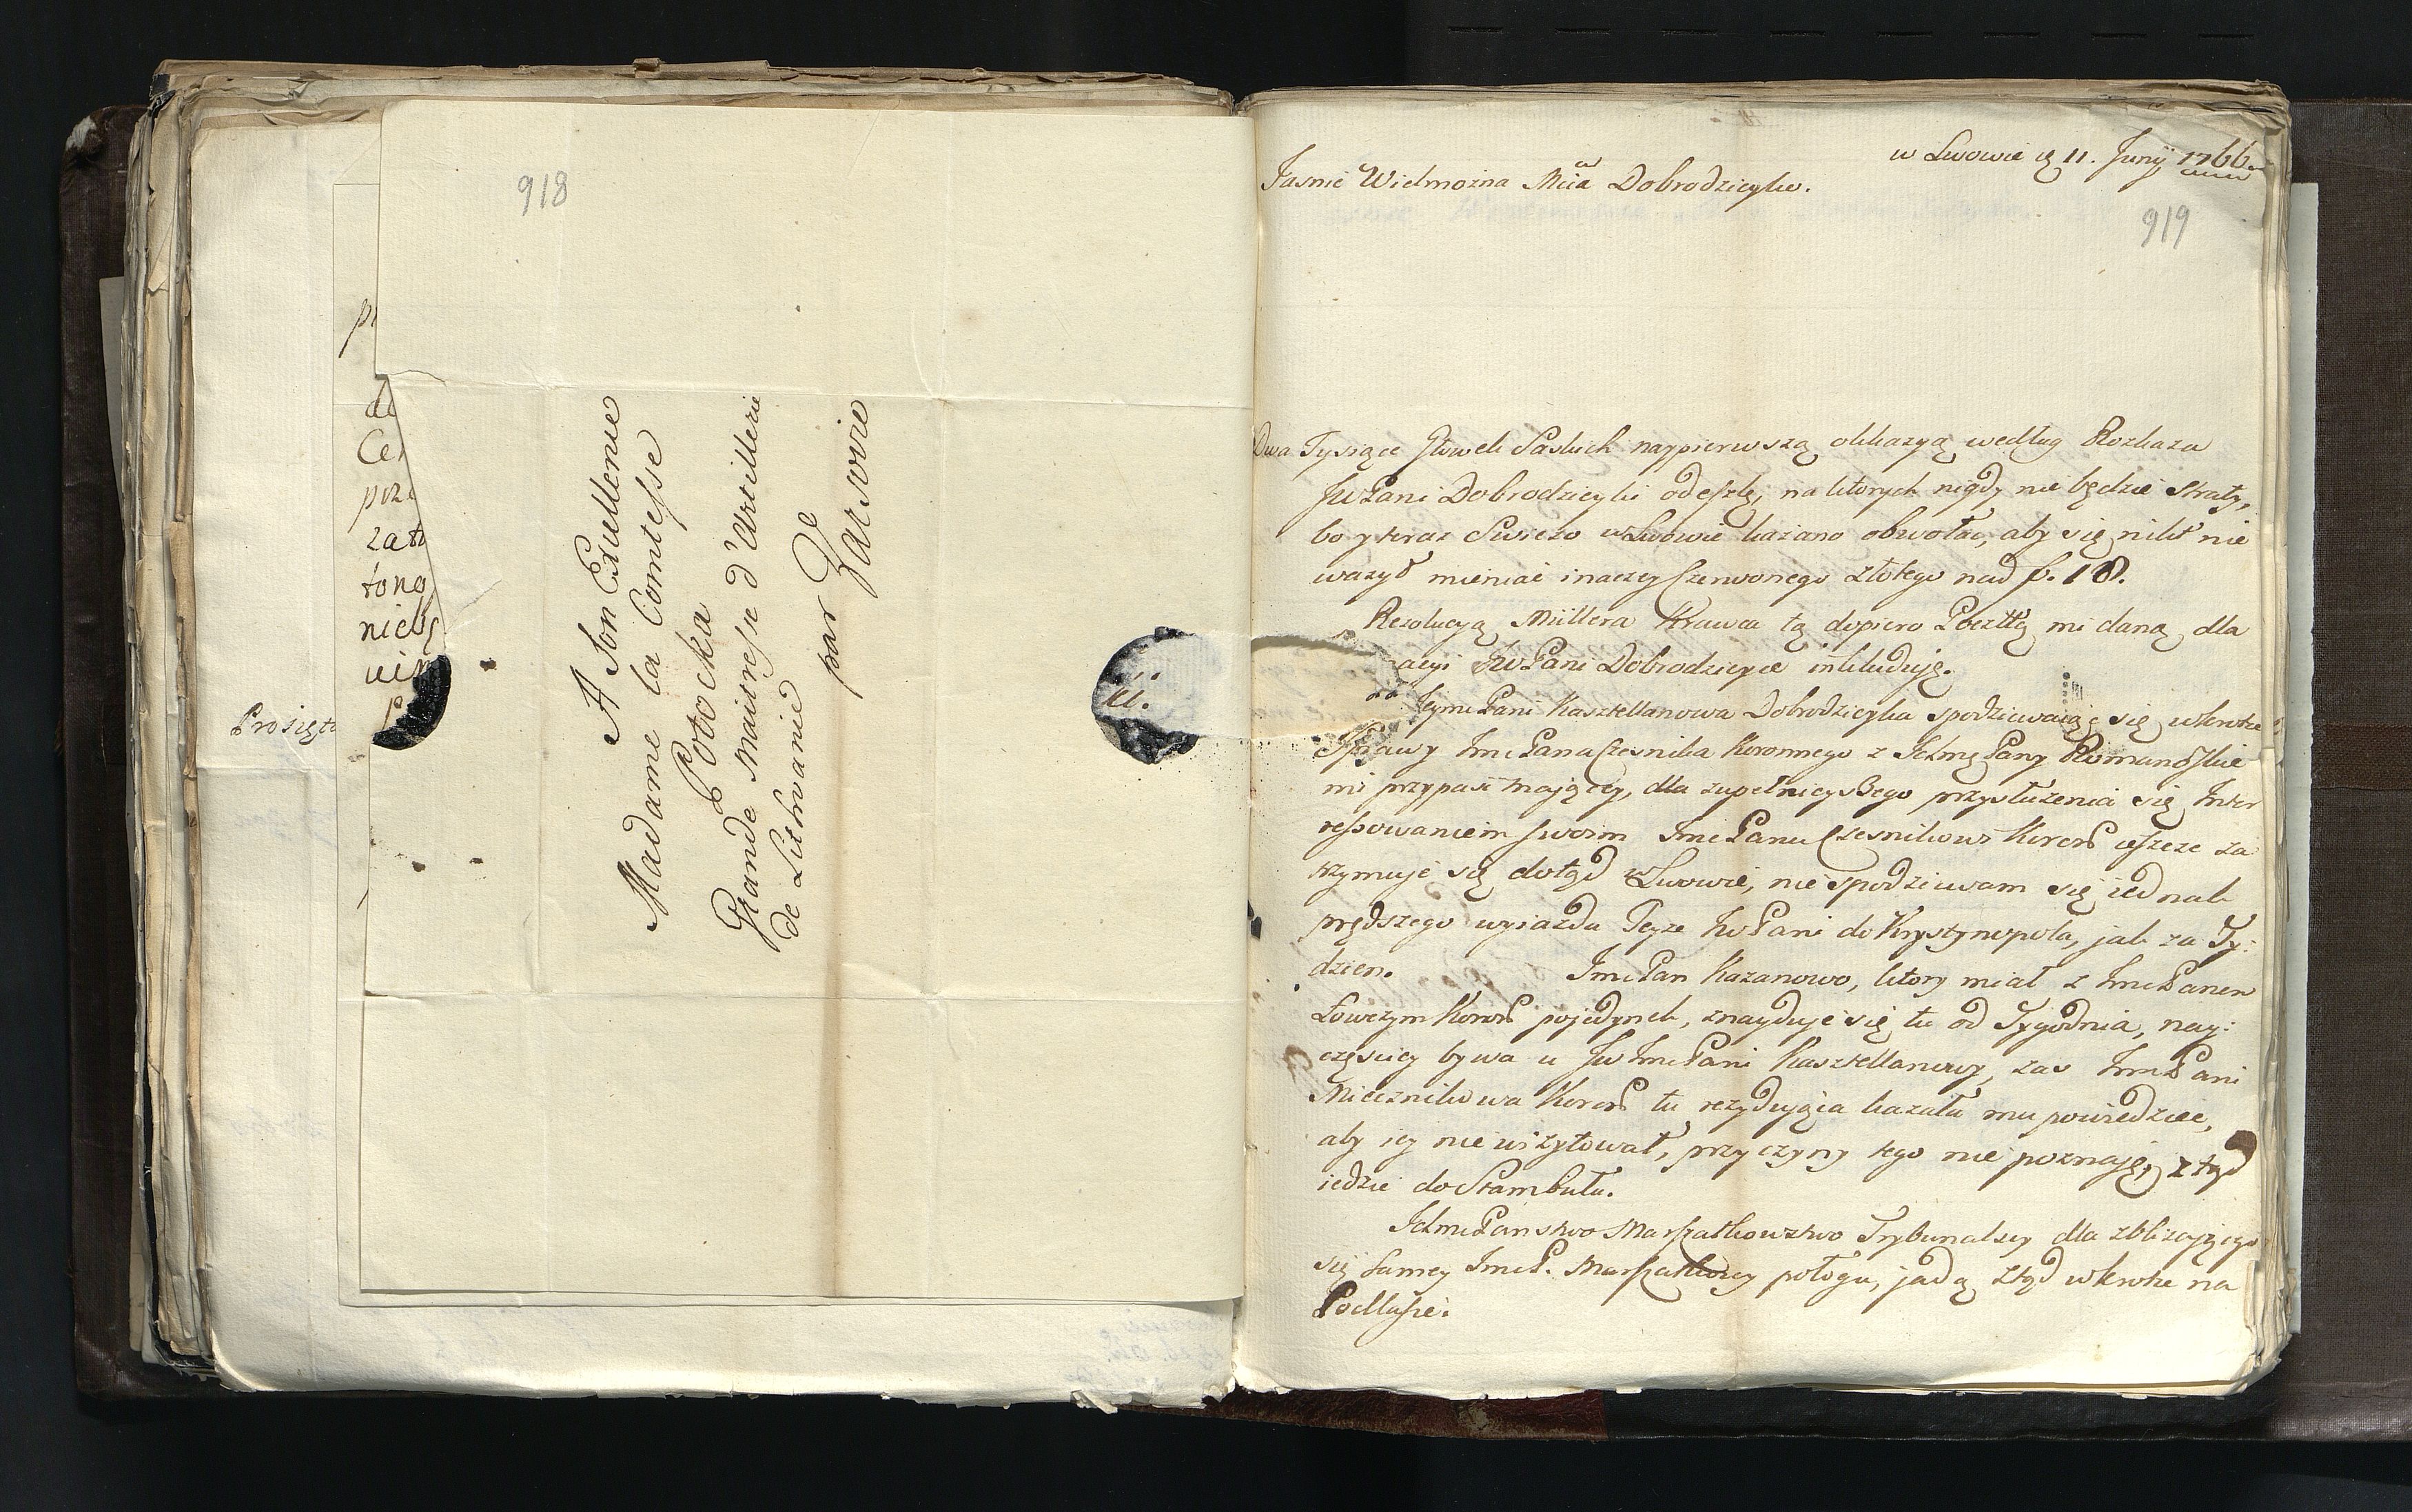 918
A Son Excellence
Madame la Comtesse
Potocka
Grande Maitresse d'Artillerie
de Lithvanie
par
Varsovie
Prosięta
w Lwowie 11. Junij 1766.
Jasnie Wielmożna Mcia Dobrodzieyko.
919
Dwa Tysiące Główek Saskich naypierwszą okkazyą według Rozkazu
JwPani Dobrodzieyki odeszlę, na ktorych nigdy nie będzie straty,
bo y teraz Swieżo w Lwowie kazano obwołać, aby się nikt nie
ważył mieniać inaczey Czerwonego złotego nad f. 18.
Rezolucyą Müllera Krawca tą dopiero Pocztą mi daną, dla
acyi JwPani Dobrodzieyce inkluduję.
Jeymć Pani Kasztellanowa Dobrodzieyka spodziewaiąc się wkrotce
Sprawy ImćPana Czesnika Koronnego z Ichmć Pany Romanowskie
mi przypaść mającey, dla zupełnieyszego przysłużenia się Inter
ressowaniem swoim ImćPanu Czesnikowi Koron ieszcze za
trzymuje się dotąd w Lwowie, nie spodziewam się iednak
prędszego wyiazdu Teyże JwPani do Krystynopola, jak za Ty:
dzien. ImćPan Kazanowo, ktory miał z ImćPanem
Łowczym Koron pojedynek, znayduje się tu od Tygodnia, nay:
częściey bywa u Jw ImćPani Kasztellanowy, zas ImćPani
Miecznikowa Koron tu rezydująca kazała mu powiedziec,
aby iey nie wizytował, przyczyny tego nie poznaję, ztąd
iedzie do Stambułu.
IchmćPanstwo Marszałkowstwo Trybunalscy dla zbliżającego
się samey ImćP. Marszałkowey połogu, jadą ztąd wkrotce na
Podlasie.